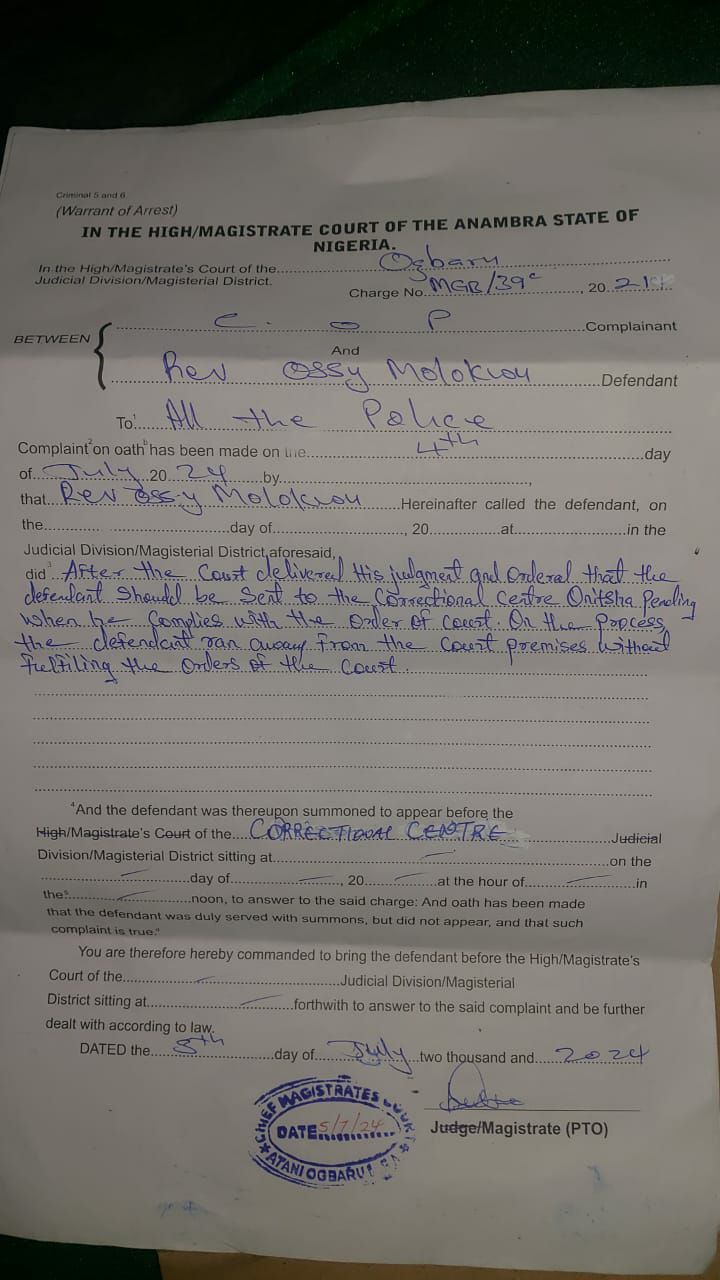 Criminal 5 and 6.
(Warrant of Arrest)
IN THE HIGH/MAGISTRATE COURT OF THE ANAMBRA STATE OF
NIGERIA.
In the High/Magistrate's Court of the....Ogbaru....
Judicial Division/Magisterial District.
Charge No. MGB/39c, 2021
C. O P Complainant
BETWEEN
And
Rev Ossy Molokwu Defendant
To1 All the Police
Complaint2 on oathb has been made on the....4th....day
of July 2024 by....,
that Rev Ossy Molokwu Hereinafter called the defendant, on
the....day of...., 20....at....in the
Judicial Division/Magisterial District, aforesaid,
did3 After the Court delivered His judgment and Orderal that the
defendant should be sent to the Correctional Centre Onitsha Pending
when he complies with the Order of court. On the process
the defendant ran away from the Court premises without
fulfiling the Orders of the Court.
4And the defendant was thereupon summoned to appear before the
High/Magistrate's Court of the....CORRECTIONAL CENTRE....Judicial
Division/Magisterial District sitting at....on the
....day of...., 20....at the hour of....in
the5....noon, to answer to the said charge: And oath has been made
that the defendant was duly served with summons, but did not appear, and that such
complaint is true."
You are therefore hereby commanded to bring the defendant before the High/Magistrate's
Court of the....Judicial Division/Magisterial
District sitting at....forthwith to answer to the said complaint and be further
dealt with according to law.
DATED the....day of July two thousand and 2024
CHIEF MAGISTRATES COURT
DATE 5/7/24
ATANI OGBARU
Judge/Magistrate (PTO)